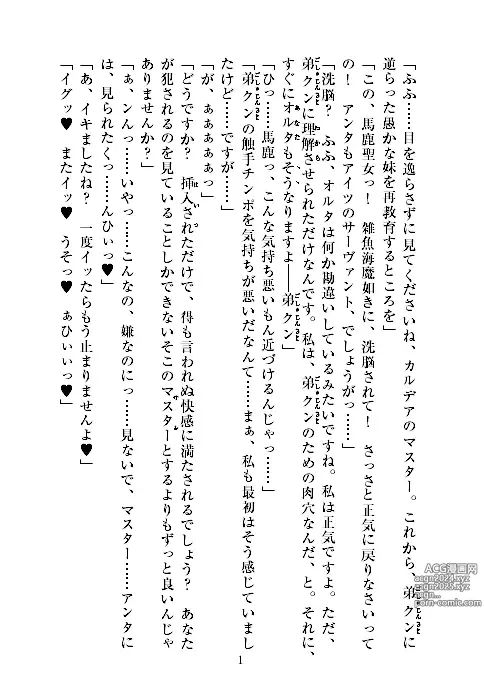 「ふふ……目を逸らさずに見てくださいね、カルデアのマスター。これから、弟クンに
逆らった愚かな妹を再教育するところを」
「この、馬鹿聖女っ！　雑魚海魔如きに、洗脳されて！　さっさと正気に戻りなさいって
の！　アンタもアイツのサーヴァント、でしょうがっ……」
「洗脳？　ふふ、オルタは何か勘違いしているみたいですね。私は正気ですよ。ただ、
弟クンに理解させられただけなんです。私は、弟クンのための肉穴なんだ、と。それに、
すぐにオルタもそうなりますよ――弟クン」
「ひっ……馬鹿っ、こんな気持ち悪いもん近づけるんじゃっ……」
「弟クンの触手チンポを気持ちが悪いだなんて……まぁ、私も最初はそう感じていまし
たけど……ですが……」
「が、ぁぁぁぁぁっ」
「どうですか？　挿入されただけで、得も言われぬ快感に満たされるでしょう？　あなた
が犯されるのを見ていることしかできないそこのマスターとするよりもずっと良いんじゃ
ありませんか？」
「ぁ、ンんっ……いやっ……こんなの、嫌なのにっ……見ないで、マスター……アンタに
は、見られたくっ……んひぃっ♥」
「あ、イキましたね？　一度イッたらもう止まりませんよ♥」
「イグッ♥　またイッ♥　うそっ♥　ぁひぃぃっ♥」
1
ACG漫画網
acgn2024.xyz
acgn2025.xyz
porn-comic.com